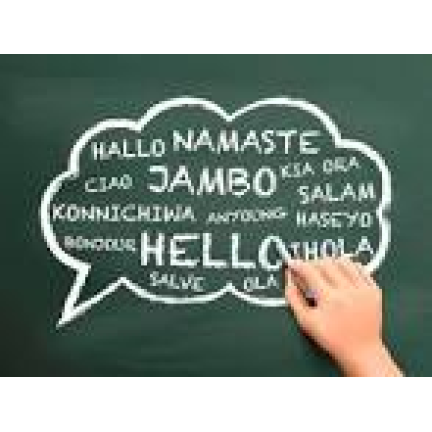 HALLO NAMASTE
CIAO JAMBO KIA ORA
SALAM
KONNICHIWA ANYOUNG HASEYO
BONJOUR HELLO ¡HOLA
SALVE OLA